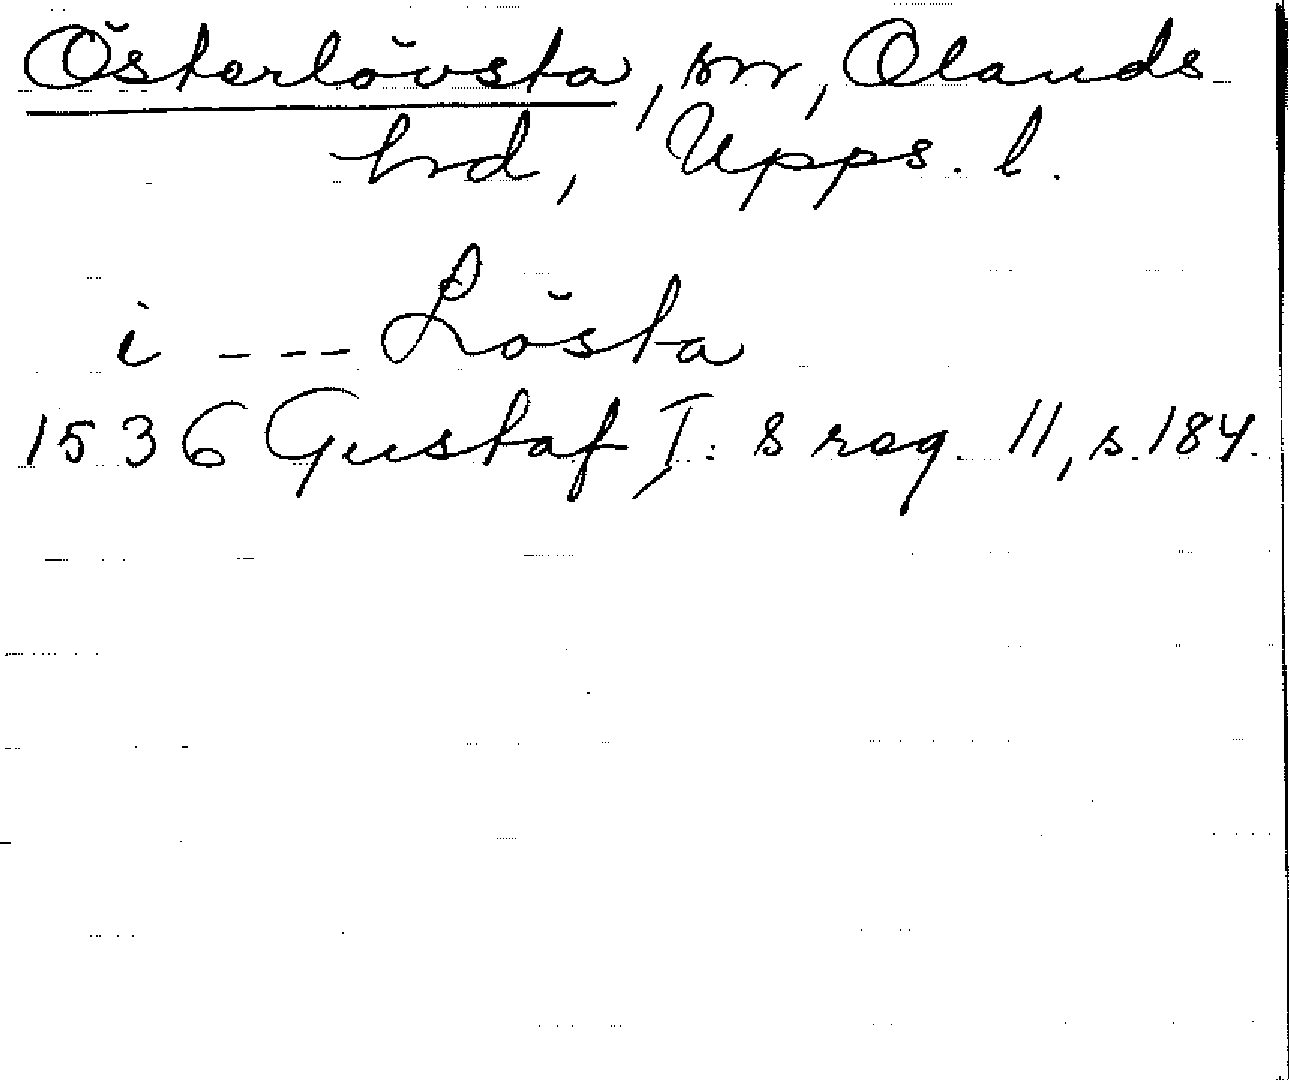 Österlövsta, sn, Olands
hrd, Upps. l.
i --- Lösta
1536 Gustaf I:s reg. 11, s. 184.